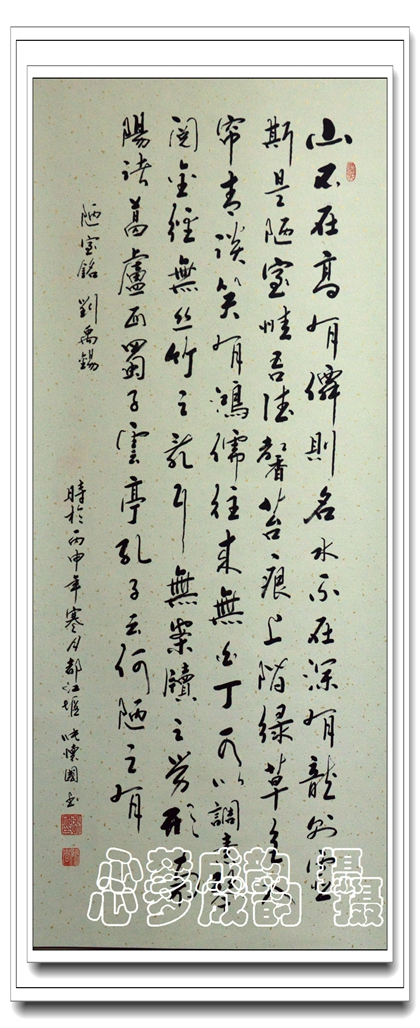 山不在高有僊則名水不在深有龍則靈
斯是陋室惟吾德馨苔痕上階緑草色入
帘青談笑有鴻儒往來無白丁可以調素琴
閱金經無丝竹之亂耳無案牘之勞形南
陽諸葛廬西蜀子雲亭孔子云何陋之有
陋室銘 劉禹錫
時於丙申年寒月都江堰懷國书
心梦成韵 摄